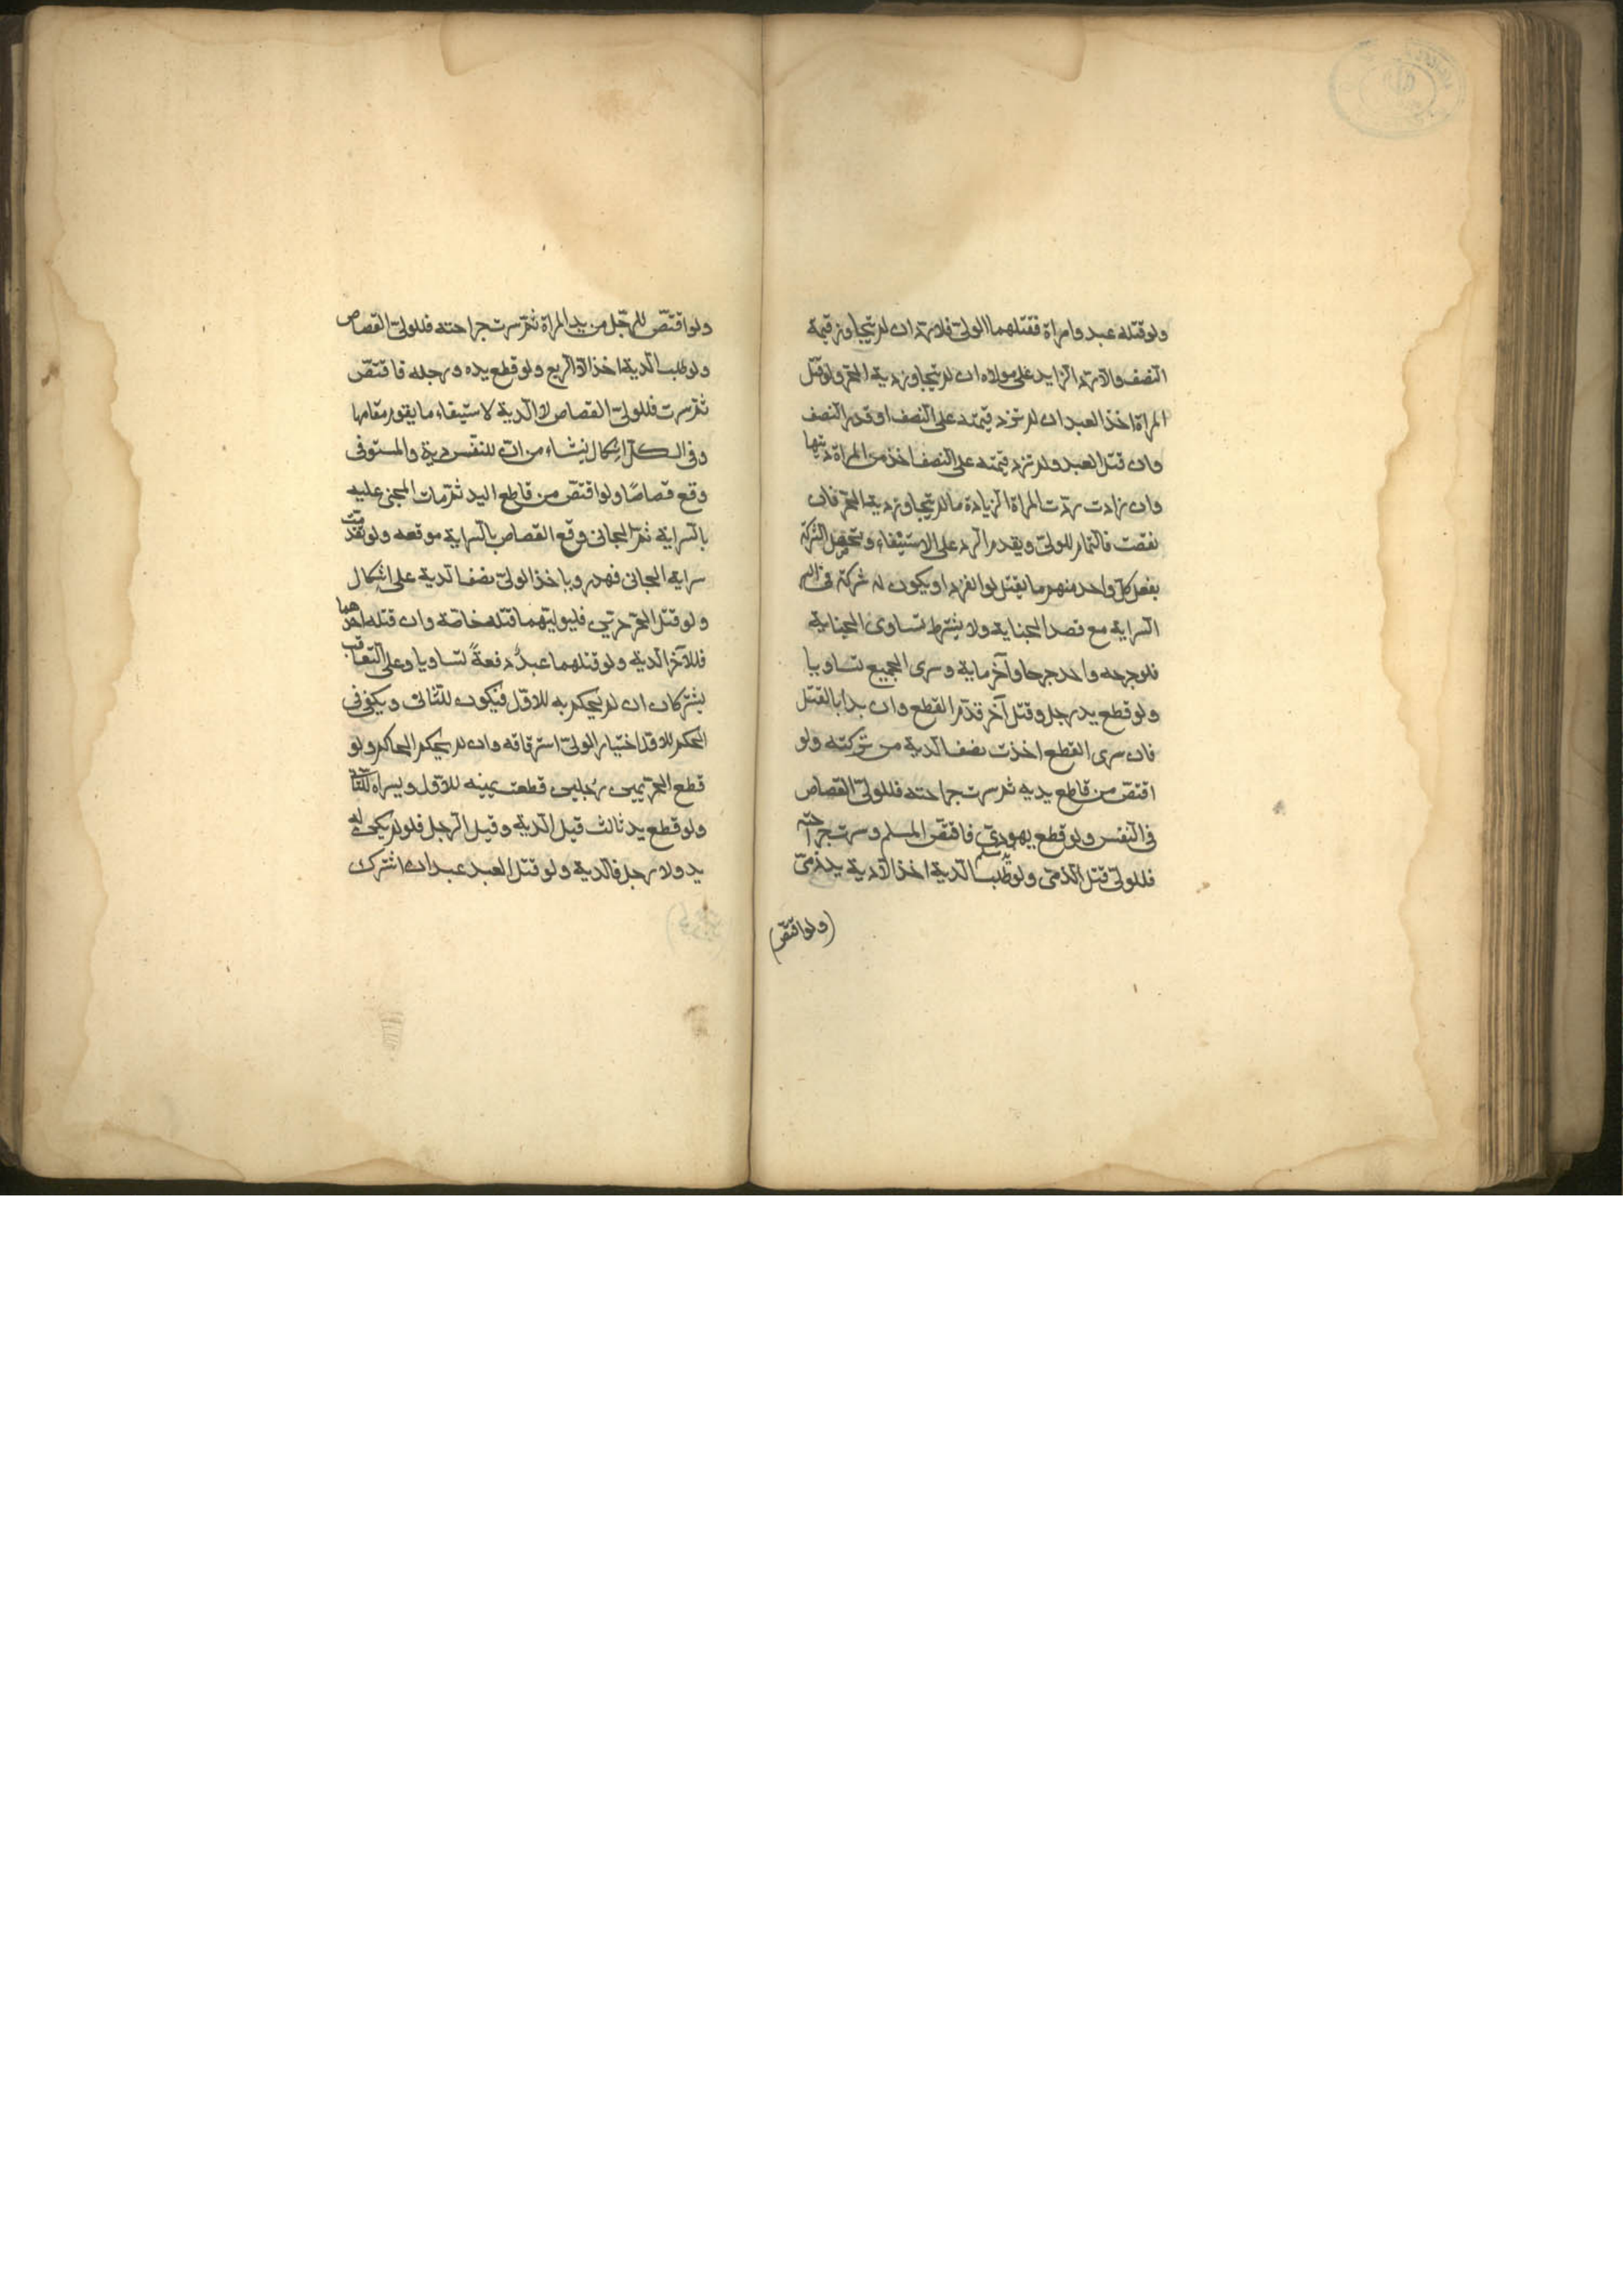 ولو قتله عبد وامراة فقتلهما الولى فلا رد ان لم يتجاوز قيمة
النصف والا رد الزايد على مولاه ان لم يتجاوز دية الحر ولو قتل
المراة اخذ العبد ان لم تزد قيمته على النصف او قدر النصف
وان قتل العبد ولم تزد قيمته على النصف اخذ من المراة ديتها
وان زادت ردت المراة الزيادة ما لم يتجاوز دية الحر فان
نقصت فالتمام للولى ويقدم الرد على الاستيفاء وتحصل الشركة
بفعل كل واحد منهم ما يقتل لو انفرد او يكون له شركة فى
السراية مع قصد الجناية ولا يشترط تساوى الجناية
فلو جرحه واحد جرحا وآخر ماية وسرى الجميع تساويا
ولو قطع يد رجل وقتل آخر قدم القطع وان بدا بالقتل
فان سرى القطع اخذت نصف الدية من تركته ولو
اقتص من قاطع يديه ثم سرت جراحته فللولى القصاص
فى النفس ولو قطع يهودى فاقتص المسلم وسرت جراحته
فللولى قتل الذمى ولو طلب الدية اخذ الا دية يد ذمى
(ولو اقتص)
ولو اقتص للرجل من يد المراة ثم سرت جراحته فللولى القصاص
ولو طلب الدية اخذ الا الربع ولو قطع يده ورجله فاقتص
ثم سرت فللولى القصاص لا الدية لاستيفاء ما يقوم مقامها
وفى الكل اشكال ينشاء من ان للنفس دية والمستوفى
وقع قصاصًا ولو اقتص من قاطع اليد ثم مات المجنى عليه
بالسراية ثم الجانى وقع القصاص بالسراية موقعه ولو تقدمت
سراية الجانى فهدر وياخذ الولى نصف الدية على اشكال
ولو قتل الحر حرين فليس لوليهما قتله خاصة وان قتله احدهما
فللآخر الدية ولو قتلهما عبدٌ دفعةً تساويا وعلى التعاقب
يشتركان ان لم يحكم به للاول فيكون للثانى ويكفى فى
الحكم للاول اختيار الولى استرقاقه وان لم يحكم الحاكم ولو
قطع الحر يمين رجلين قطعت يمينه للاول ويسراه للثانى
ولو قطع يد ثالث قيل الدية وقيل الرجل فلو لم يكن له
يد ولا رجل فالدية ولو قتل العبد عبدان اشترك